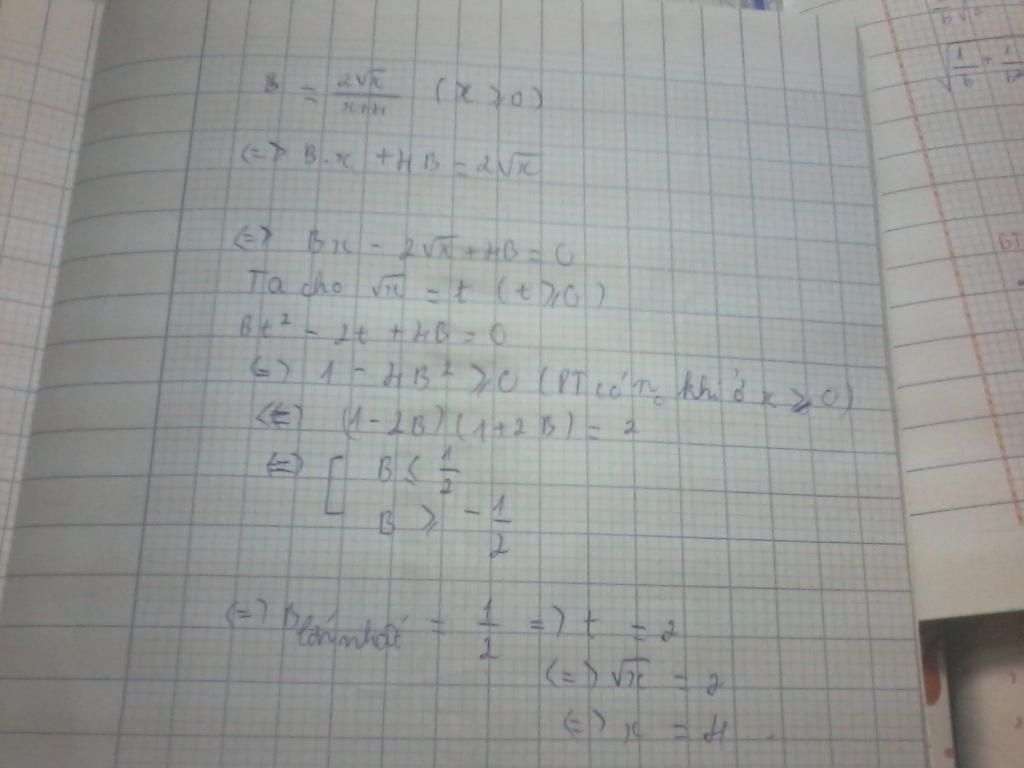 B = 2√x / x+4 (x ≥ 0)
<=> B.x + 4B = 2√x
<=> Bx - 2√x + 4B = 0
Ta cho √x = t (t ≥ 0)
Bt² - 2t + 4B = 0
<=> 1 - 4B² ≥ 0 (PT có n₀ khi x ≥ 0)
<=> (1-2B)(1+2B) = 2
<=> [ B ≤ 1/2
B ≥ -1/2
<=> B lớn nhất = 1/2 => t = 2
<=> √x = 2
<=> x = 4